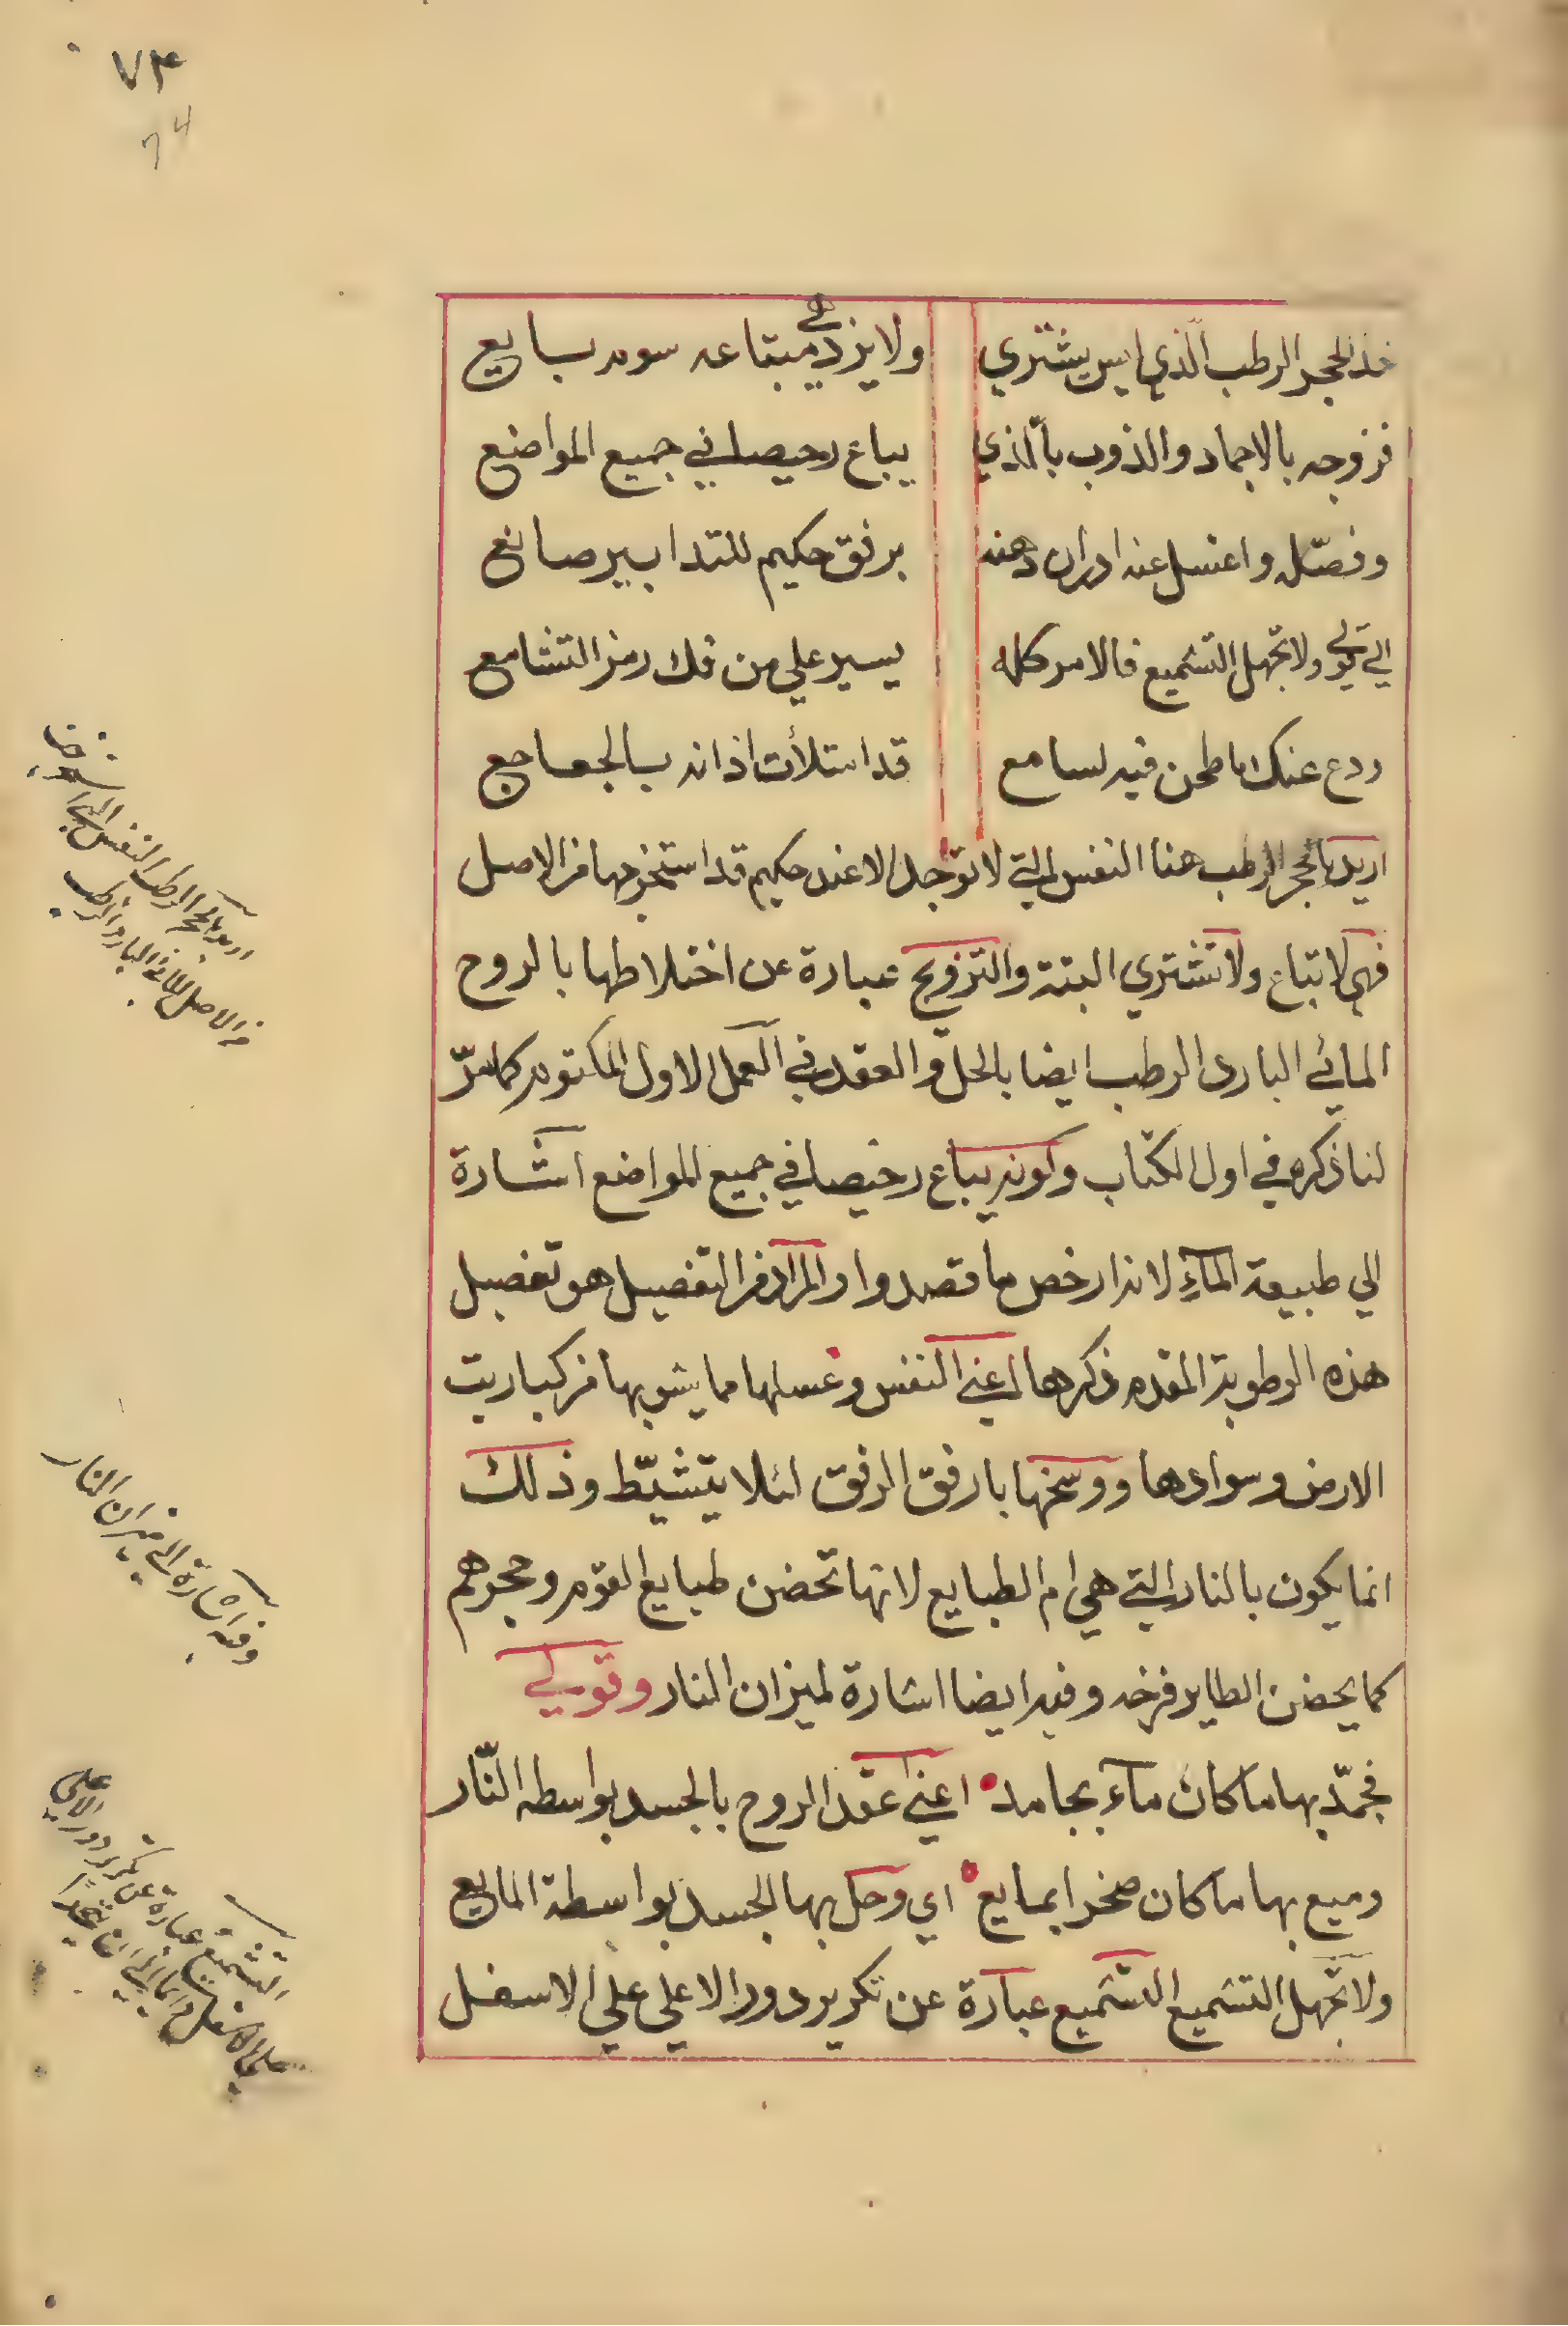 ٧٤
74
خذ الحجر الرطب الذي ليس يشتري ولا يزدهي مبتاعه سوم بسايع
فزوجه بالاجماد والذوب بالّذي يباع رخيصا في جميع المواضع
وفصّله واغسل عنه ادران دهنه برفق حكيم للتدابير صانع
الي قولي ولا تجهل التشميع فالامر كله يسير علي من فك رمز التشامع
ودع عنك ما طحن فيه لسامع قد امتلأت اذانه بالجعاجع
اريد بالحجر الرطب هنا النفس التي لا توجد الا عند حكيم قد استخرجها من الاصل
فهي لا تباع ولا تشتري البتة والتزويج عبارة عن اختلاطها بالروح
المائي البارد الرطب ايضا بالحل والعقد في العمل الاول المكتوم كما مرّ
لنا ذكره في اول الكتاب وكونه يباع رخيصا في جميع المواضع اشارة
الي طبيعة المآء لانه ارخص ما قصدوا والمراد من التفصيل هو تفصيل
هذه الرطوبة المقدم ذكرها اعني النفس وغسلها مما يشوبها من كباريت
الارض وسوادها ووسخها بارفق الرفق لئلا يتشيّط وذلك
انما يكون بالنار التي هي ام الطبايع لانها تحضن طبايع القوم وحجرهم
كما يحضن الطاير فرخه وفيه ايضا اشارة لميزان النار وقولي
فجمّد بها ما كان مآء بجامد اعني عقد الروح بالجسد بواسطه النّار
وميع بها ما كان صخرا بمايع اي وحل بها الجسد بواسطة المايع
ولا تجهل التشميع التشميع عبارة عن تكرير دور الاعلي علي الاسفل
اريد بالحجر الرطب النفس
من الاصل المائي البارد الرطب
وفيه اشارة الي ميزان النار
التشميع عبارة عن تكرير دور الاعلي
علي الاسفل